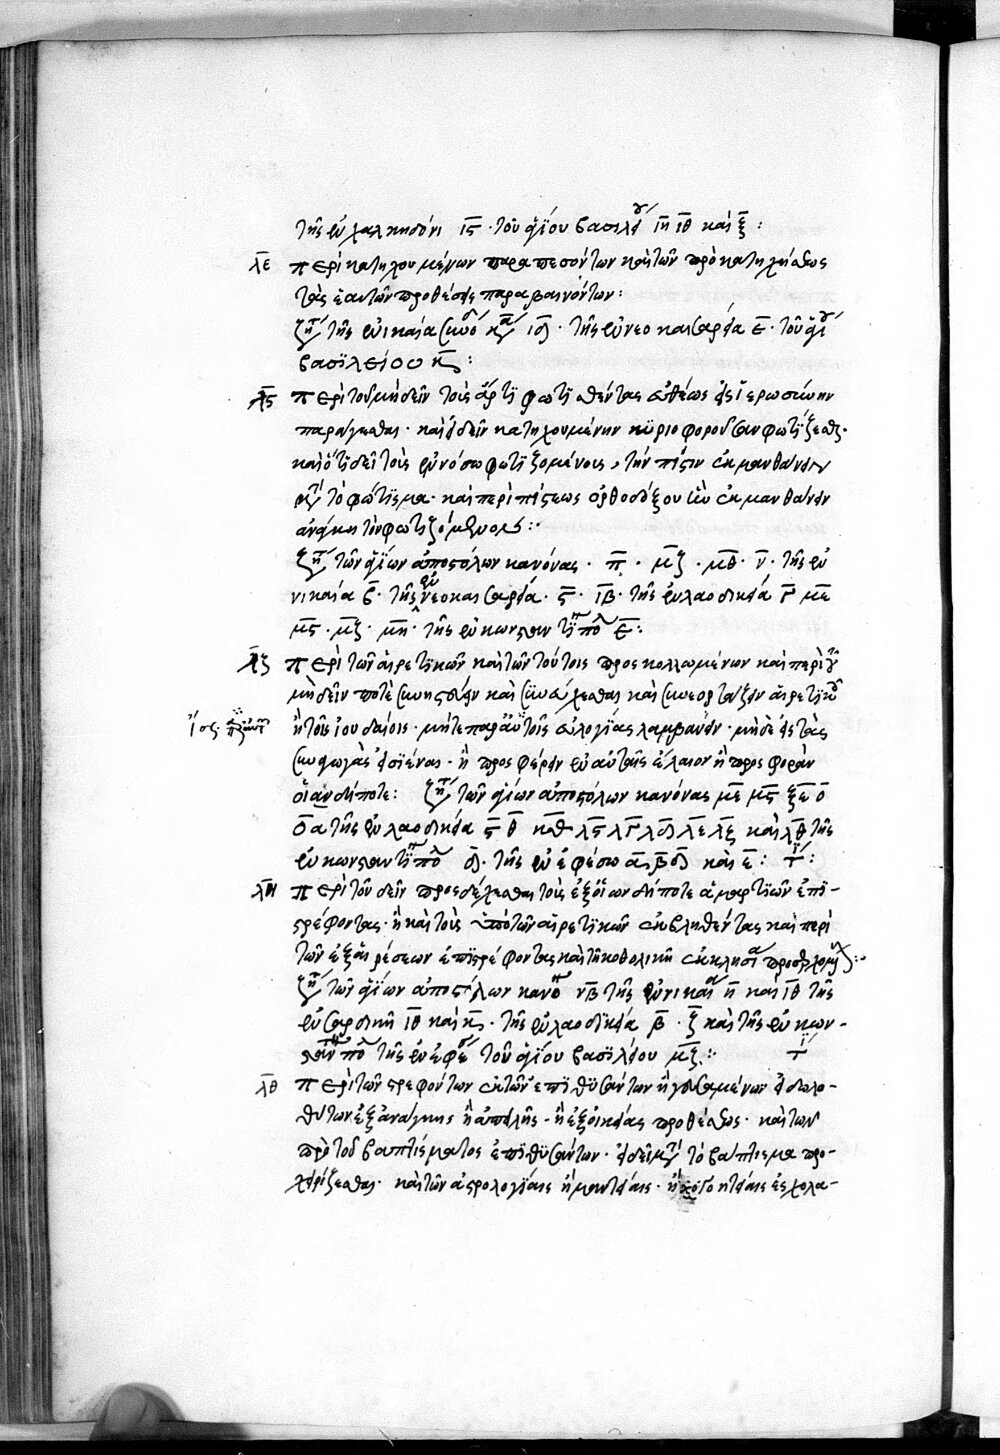 τῆς ἐν χαλκηδόνι ιϛ · τοῦ ἁγίου βασιλείου ιη ιθ καὶ ξ :
λε περὶ κατηχουμένων παραπεσόντων καὶ τῶν πρὸ κατηχήσεως
τὰς ἑαυτῶν προθέσεις παραβαινόντων :
ζητ τῆς ἐν νικαία συνοδ καν ιδ · τῆς ἐν νεοκαισαρεία ε · τοῦ ἁγίου
βασιλείου κ :
λϛ περὶ τοῦ μὴ δεῖν τοὺς ἄρτι φωτισθέντας εὐθέως εἰς ἱερωσύνην
παράγεσθαι · καὶ εἰ δεῖν κατηχουμένην κυοφοροῦσαν φωτίζεσθαι ·
καὶ ὅτι δεῖ τοὺς ἐν νόσω φωτιζομένους, τὴν πίστιν ἐκμανθάνειν
μετ τὸ φώτισμα · καὶ περὶ πίστεως ὀρθοδόξου ἣν ἐκμανθάνειν
ἀνάγκη τὸν φωτιζόμενον :
ζητ τῶν ἁγίων ἀποστόλων κανόνας · π · μζ · μθ · ν · τῆς ἐν
νικαία β · τῆς ἐν νεοκαισαρεία · ϛ · ιβ · τῆς ἐν λαοδικεία γ με
μϛ · μζ · μη · τῆς ἐν κωνσταντιπολ ε :
λζ περὶ τῶν αἱρετικῶν καὶ τῶν τούτοις προσκολλωμένων καὶ περὶ τ
μὴ δεῖν ποτὲ συνεστιᾶν καὶ συνεύχεσθαι καὶ συνεορτάζειν αἱρετικοῖς
ἢ τοῖς ἰουδαίοις · μήτε παρ αὐτοῖς εὐλογίας λαμβάνειν · μὴ δὲ εἰς τὰς
συναγωγὰς εἰσιέναι · ἢ προσφέρειν ἐν αὐταῖς ἔλαιον ἢ προσφορὰν
οἱανδήποτε : ζητ τῶν ἁγίων ἀποστόλων κανόνας με μϛ ξε ο
οα τῆς ἐν λαοδικεία ϛ θ λϛ λγ λδ λε λζ καὶ λθ τῆς
ἐν κωνσταντιπολ δ · τῆς ἐν ἐφέσω α β δ καὶ ε :
λη περὶ τοῦ δεῖν προσδέχεσθαι τοὺς ἐξ οἱωνδήποτε ἁμαρτιῶν ἐπι-
στρέφοντας · ἢ καὶ τοὺς ὑπὸ τῶν αἱρετικῶν ἐκβληθέντας καὶ περὶ
τῶν ἐξ αἱρέσεων ἐπιστρέφοντας καὶ τῆ καθολικῆ ἐκκλησία προσερχομ :
ζητ τῶν ἁγίων ἀποστόλων κανο νβ τῆς ἐν νικαία η καὶ ιθ τῆς
ἐν σαρδικῆ ιθ καὶ κ · τῆς ἐν λαοδικεία β · ζ καὶ τῆς ἐν κων-
σταντιπολ τῆς ἐν ἐφέσ τοῦ ἁγίου βασιλείου μζ :
λθ περὶ τῶν στρεφόντων ἐκ τῶν ἐπιθυσάντων ἢ γευσαμένων εἰδωλο-
θύτων ἐξ ἀνάγκης ἢ ἀπειλῆς · ἢ ἐξ οἰκείας προθέσεως · καὶ τῶν
πρὸ τοῦ βαπτίσματος ἐπιθυσάντων · εἰ δεῖ μετ τὸ βάπτισμα προ-
χειρίζεσθαι · καὶ τῶν ἀστρολογίαις ἢ μαντείαις · ἢ γοητείαις ἐσχολα-